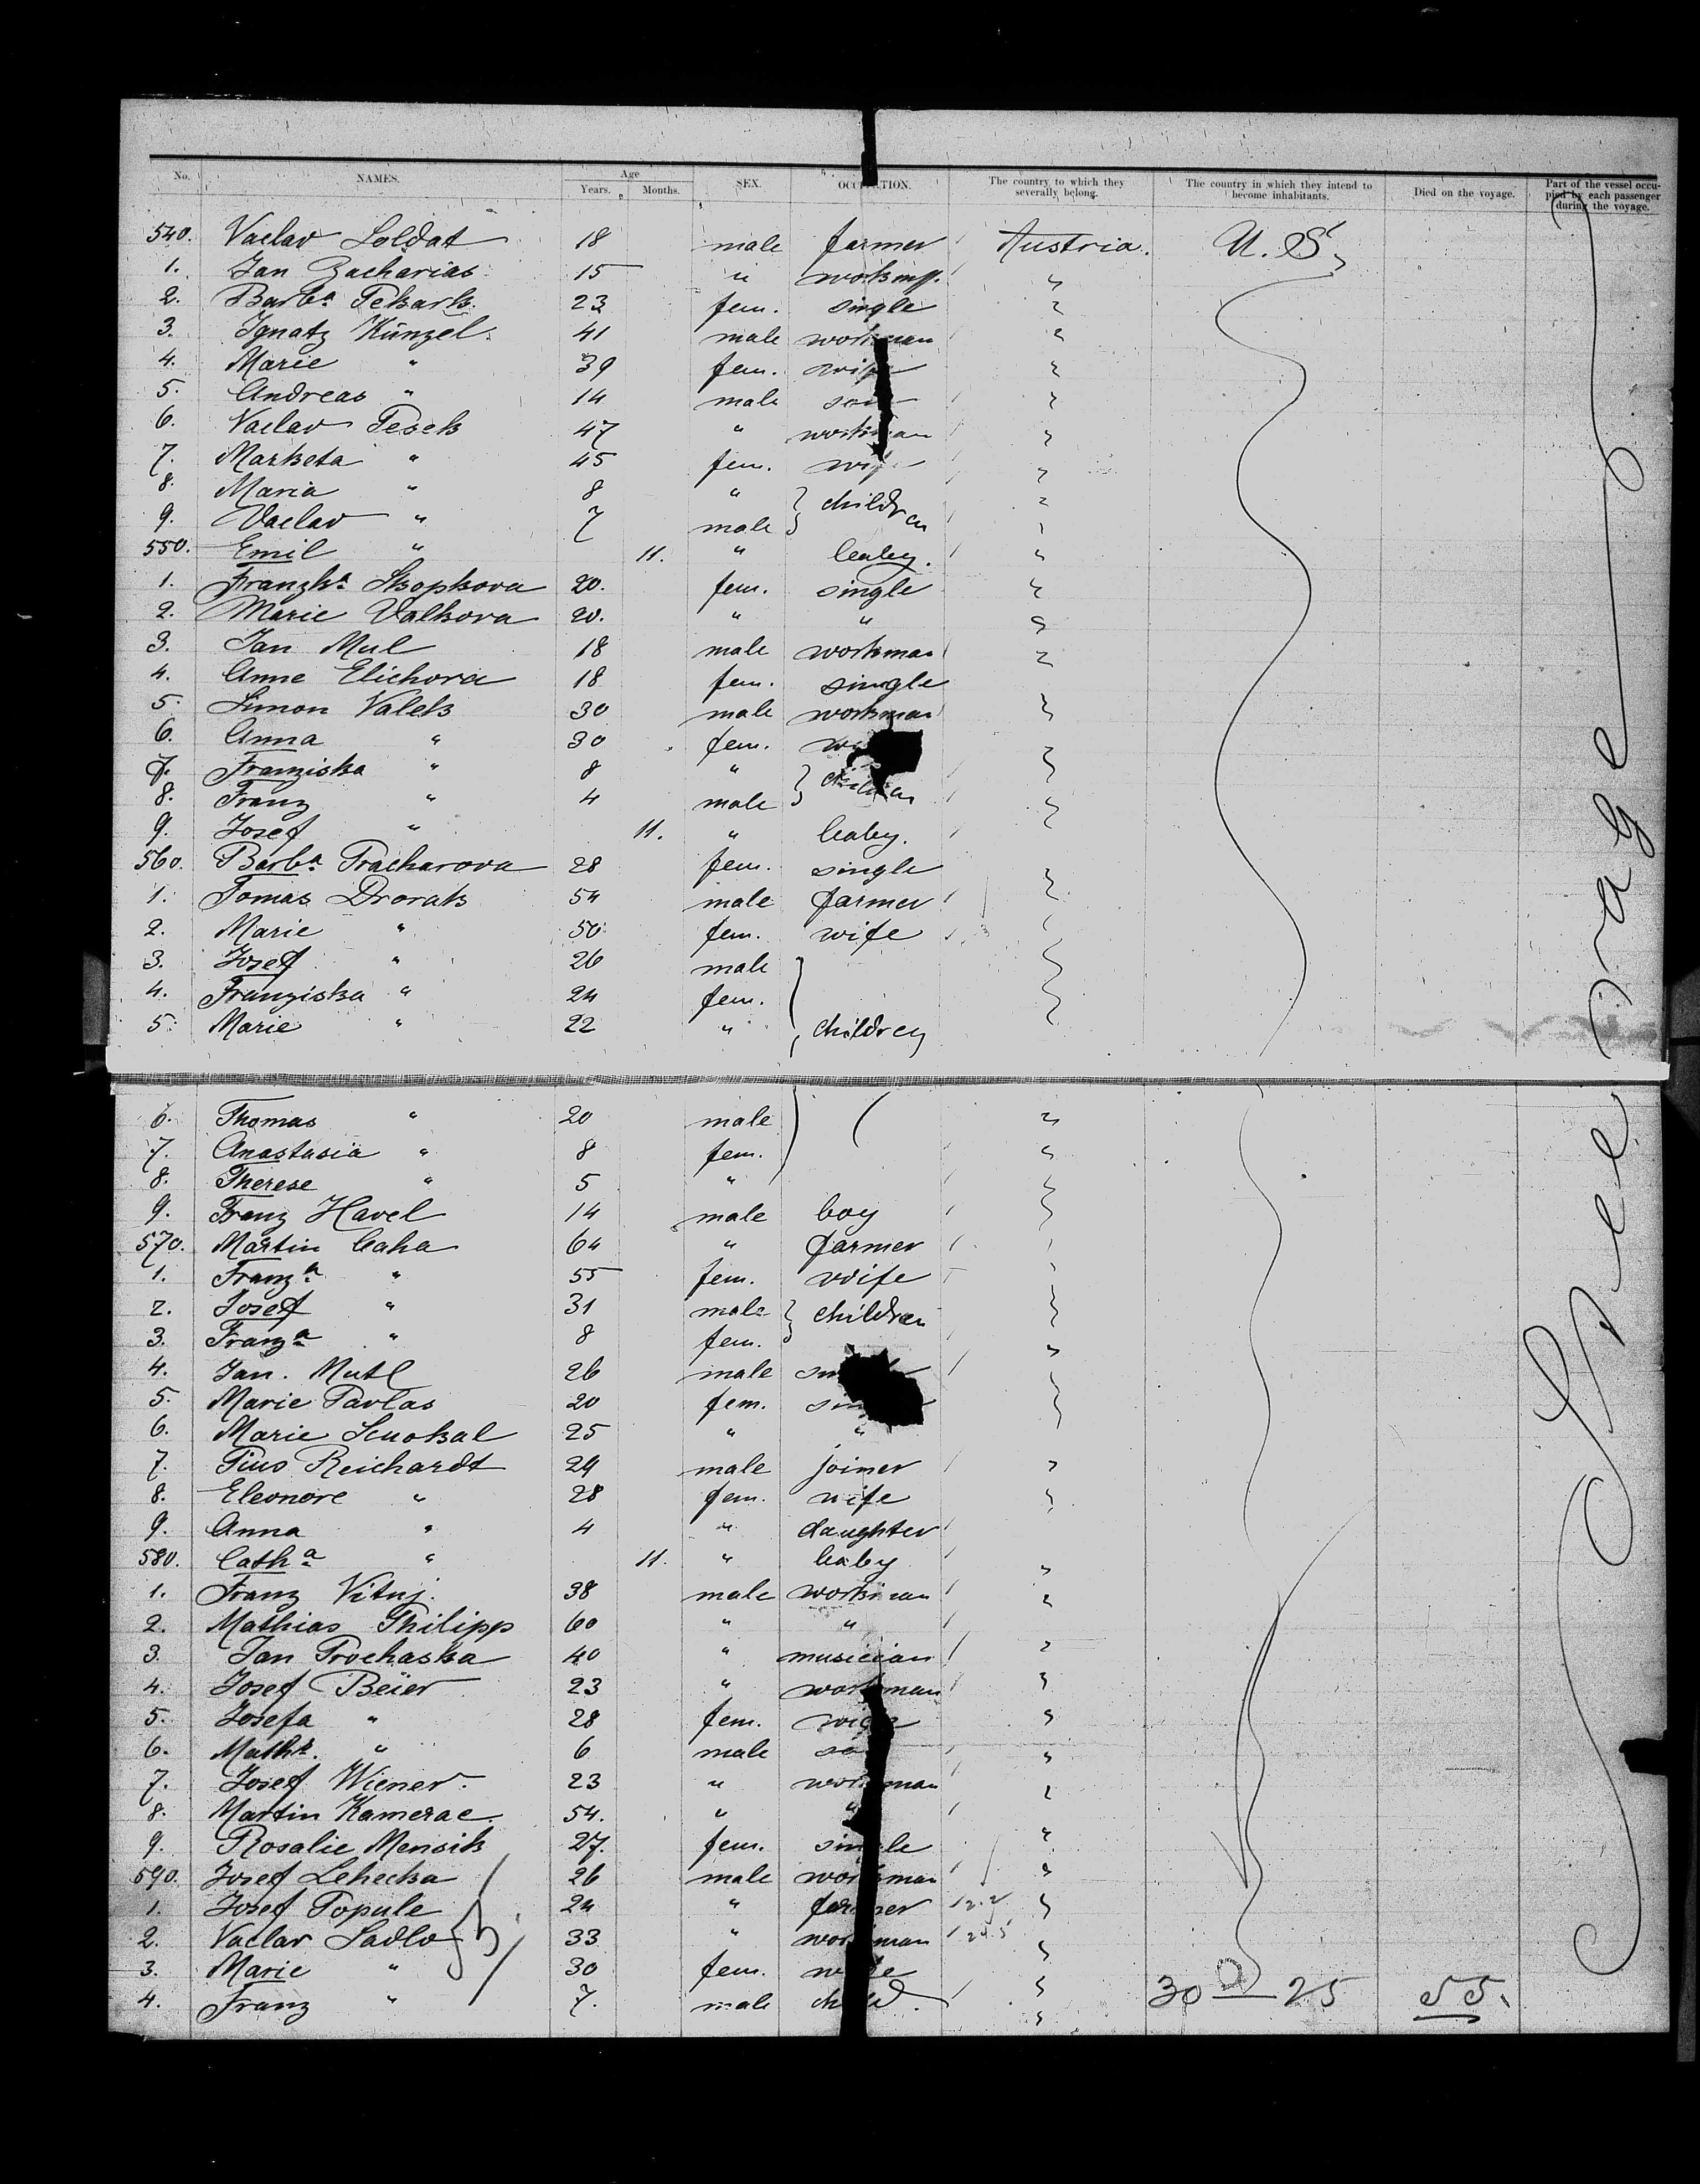 No. NAMES. Age Years. Months. SEX. OCCUPATION. The country to which they severally belong. The country in which they intend to become inhabitants. Died on the voyage. Part of the vessel occupied by each passenger during the voyage.
540. Vaclav Soldat 18 male farmer Austria. U. S.
1. Jan Zacharias 15 " workm.
2. Barbª Pekark. 23 fem. single
3. Ignatz Künzel. 41 male workman
4. Marie " 39 fem. wife
5. Andreas " 14 male son
6. Vaclav Pesek 47 " workman
7. Marketa " 45 fem. wife
8. Maria " 8 " } children
9. Vaclav " 7 male }
550. Emil " 11. " baby.
1. Franzkª Skopkova 20. fem. single
2. Marie Valkova 20. " "
3. Jan Mul 18 male workman
4. Anne Elichova 18 fem. single
5. Simon Valek 30 male workman
6. Anna " 30 fem. wi
7. Franziska " 8 " } children
8. Franz " 4 male }
9. Josef " 11. " baby.
560. Barbª Pracharova 28 fem. single
1. Tomas Dvorak 54 male farmer
2. Marie " 50 fem. wife
3. Josef " 26 male
4. Franziska " 24 fem.
5. Marie " 22 " children
6. Thomas " 20 male
7. Anastasia " 8 fem.
8. Therese " 5 "
9. Franz Havel 14 male boy
570. Martin Caha 64 " farmer
1. Franzª " 55 fem. wife
2. Josef " 31 male } children
3. Franzª " 8 fem. }
4. Jan. Mutl 26 male
5. Marie Pavlas 20 fem. sin
6. Marie 25 " "
7. Pius Reichardt 29 male joiner
8. Eleonore " 28 fem. wife
9. Anna " 4 " daughter
580. Cathª " 11. " baby
1. Franz Vituj. 38 male workman
2. Mathias Philipp 60 " "
3. Jan Prochaska 40 " musician
4. Josef Beier 23 " workman
5. Josefa " 28 fem. wife
6. Maths. " 6 male so
7. Josef Wiener. 23 " workman
8. Martin Kamerac. 54. " "
9. Rosalie Mensik 27. fem. single
590. Josef Lehecka 26 male workman
1. Josef Topule 24 " farmer
2. Vaclav Sadlo 33 " workman
3. Marie " 30 fem. wife
4. Franz " 7. male child.
30 — 25 55.
Steerage